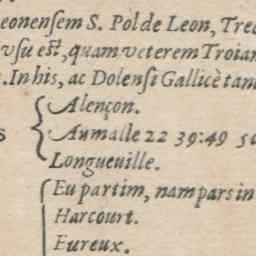 eonensem S. Pol de Leon, Trec
vsu est, quam veterem Troian
. In his, ac Dolensi Gallicè tam
Alençon.
s Aumalle 22 39:49 50
Longueuille.
Eu partim, nam pars in
Harcourt.
Eureux.